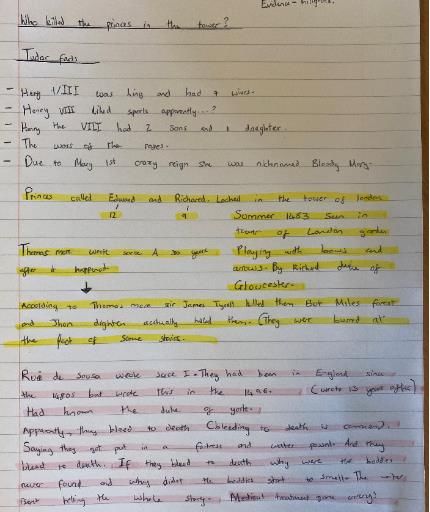 Evidence -
Who killed the princes in the tower?
Tudor facts
- Henry VIII was king and had 7 wives.
- Henry VIII liked sports apparently...?
- Henry the VIII had 2 sons and 1 daughter.
- The wars of the roses.
- Due to Mary 1st crazy reign she was nicknamed Bloody Mary.
Princes called Edward and Richard. Locked in the tower of london
12 9
Summer 1483 Seen in
tower of London garden
Playing with bows and
arrows. By Richard duke of
Gloucester.
Thomas more wrote source A 30 years
after it happened
According to Thomas more sir James Tyrell killed them But Miles forest
and Jhon dighton acctually killed them. (They were burred at
the foot of some stairs.
de Sousa wrote sorce I. They had been in England since
the 1480s but wrote this in the 1496. (wrote 13 years after)
Had known the duke of york.
Apparently they bleed to death (bleeding to death is common).
Saying they got put in a and water And they
bleed to death. If they bleed to death why were the boddies
never found and why didnt the boddies start to smell. The writer
isnt telling the whole story. Medical treatment gone wrong?